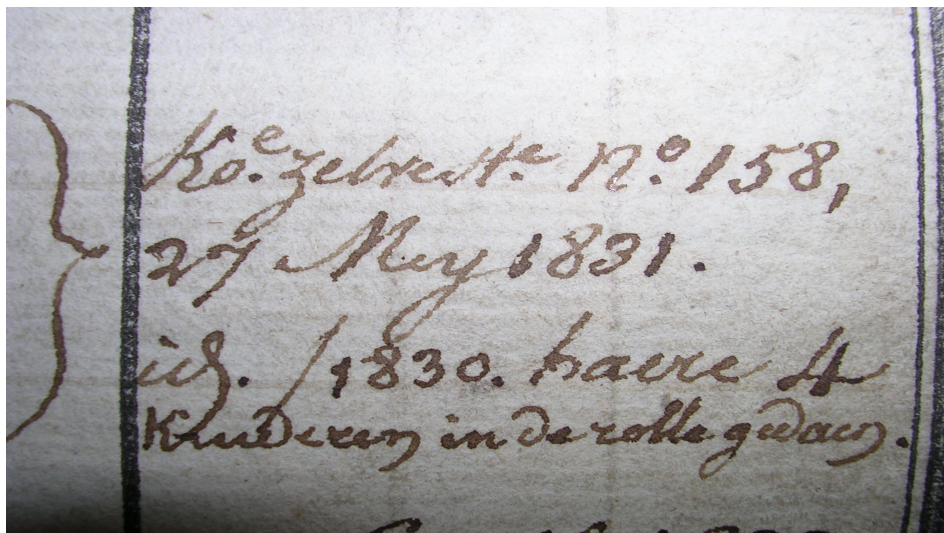 Ko.e zelve st.e N.o 158,
27 Mey 1831.
id. / 1830. haere 4
Kinderen in de rolle gedaen.